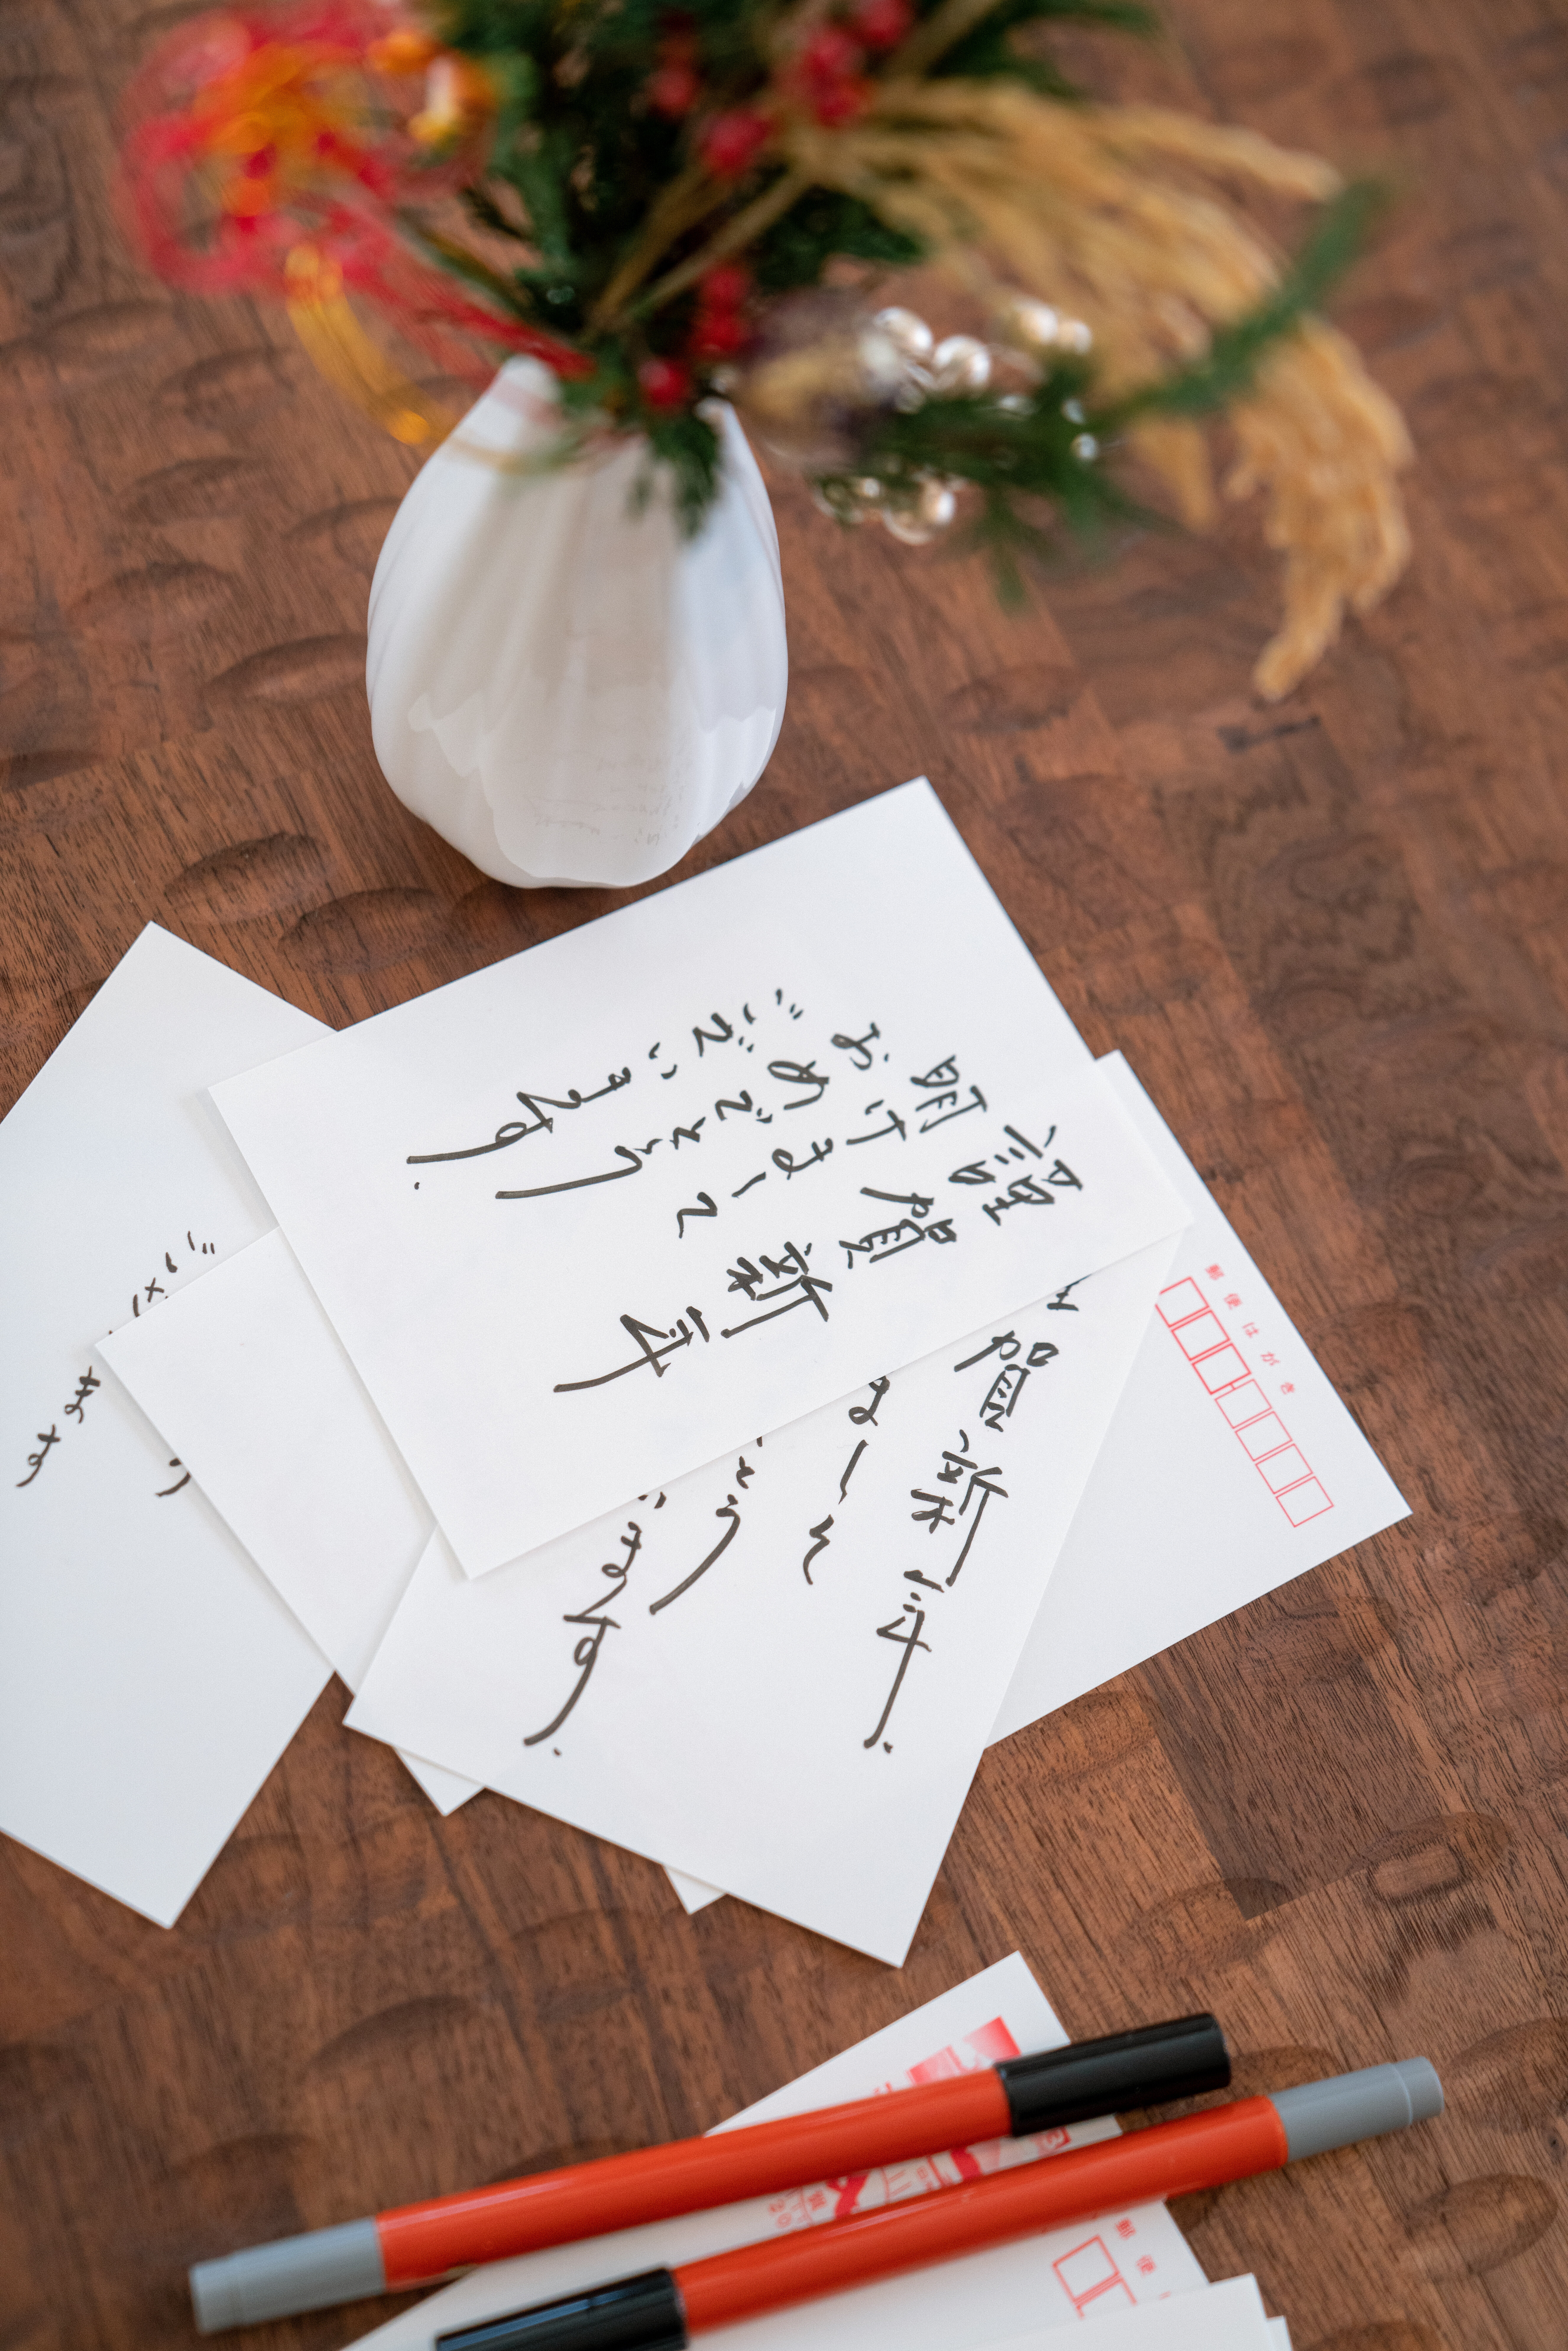 謹賀新年
明けまして
おめでとう
ございます.
賀新年.
まして
とう
います.
郵便はがき
う
ます
郵便